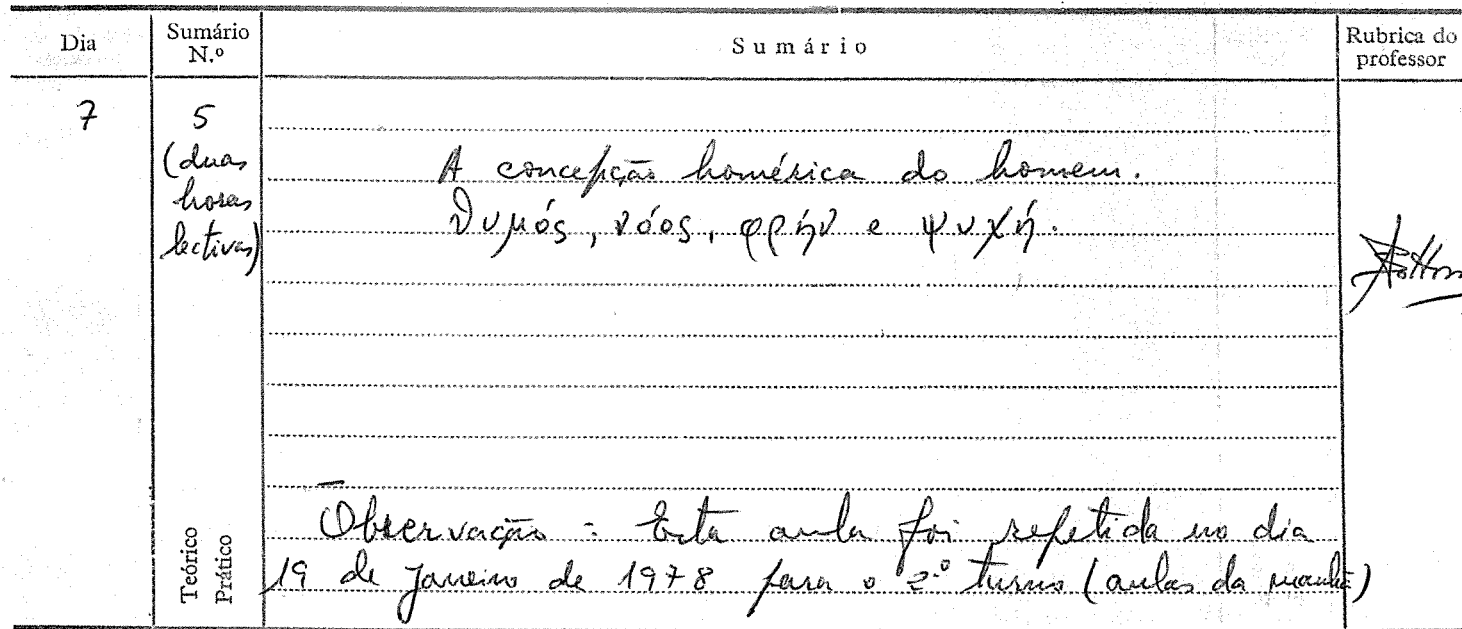 Dia
Sumário
N.º
Sumário
Rubrica do
professor
7
5
(duas
horas
lectivas)
A concepção homérica do homem.
θυμός, νόος, φρήν e ψυχή.
Teórico
Prático
Observação: Esta aula foi repetida no dia
19 de Janeiro de 1978 para o 2.º turno (aulas da manhã)